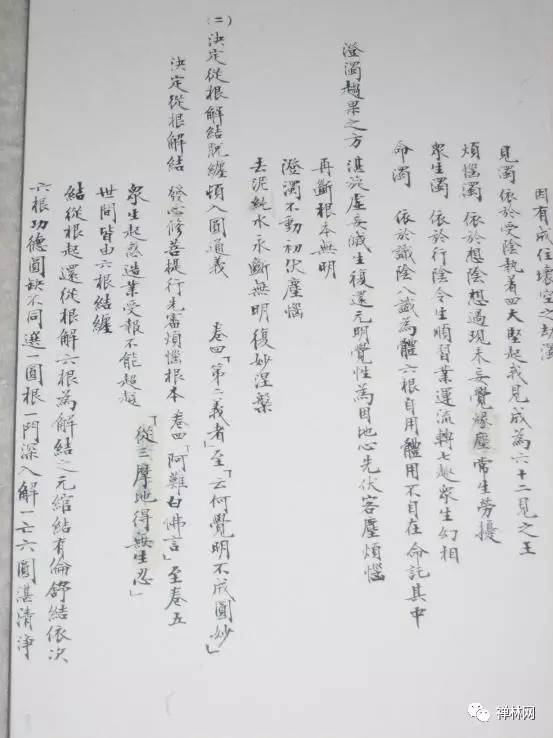 因有成住壞空之劫濁
見濁 依於受陰執着四大堅起我見成為六十二見之王
煩惱濁 依於想陰想過現未妄覺緣塵常生勞擾
眾生濁 依於行陰令生順習業運流轉七趣眾生幻相
命濁 依於識陰八識為體六根自用體用不自在命託其中
澄濁趨果之方 湛旋虛妄滅生復還元明覺性為因地心先伏客塵煩惱
再斷根本無明
澄濁不動初伏塵惱
去泥純水永斷無明復妙涅槃
(二)決定從根解結脫纏頓入圓通義 卷四「第二義者」至「云何覺明不成圓妙」
決定從根解結 發心修菩提行先審煩惱根本 卷四「阿難白佛言」至卷五
「從三摩地得無生忍」
眾生起惑造業受報不能超越
世間皆由六根結纏
結從根起還從根解六根為解結之元綰結有倫舒結依次
六根功德圓缺不同選一圓根一門深入解一亡六圓湛清淨
禅林网